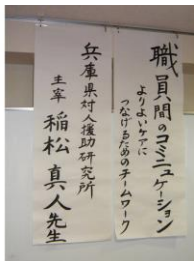 職員間のコミュニケーション
よりよいケアに
つなげるためのチームワーク
兵庫県対人援助研究所
主宰 稲松真人先生